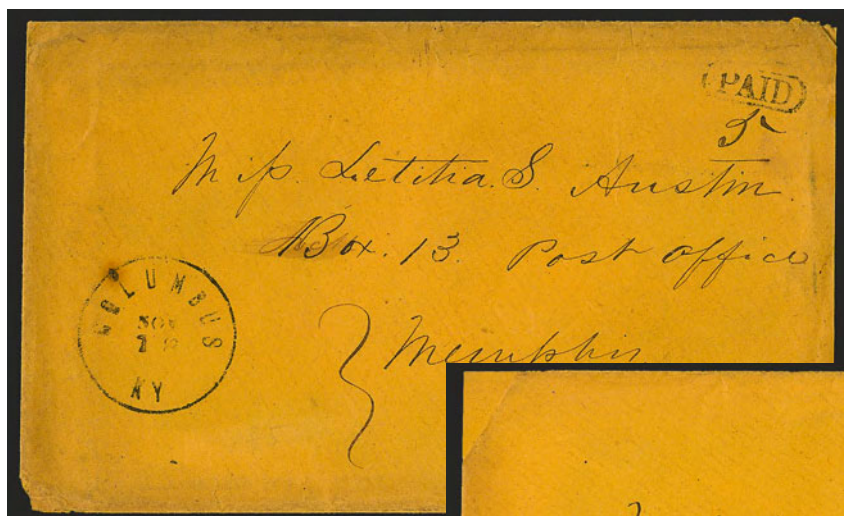 PAID
5
Miss. Letitia. S. Austin.
Box. 13. Post office
Memphis
COLUMBUS
NOV
KY